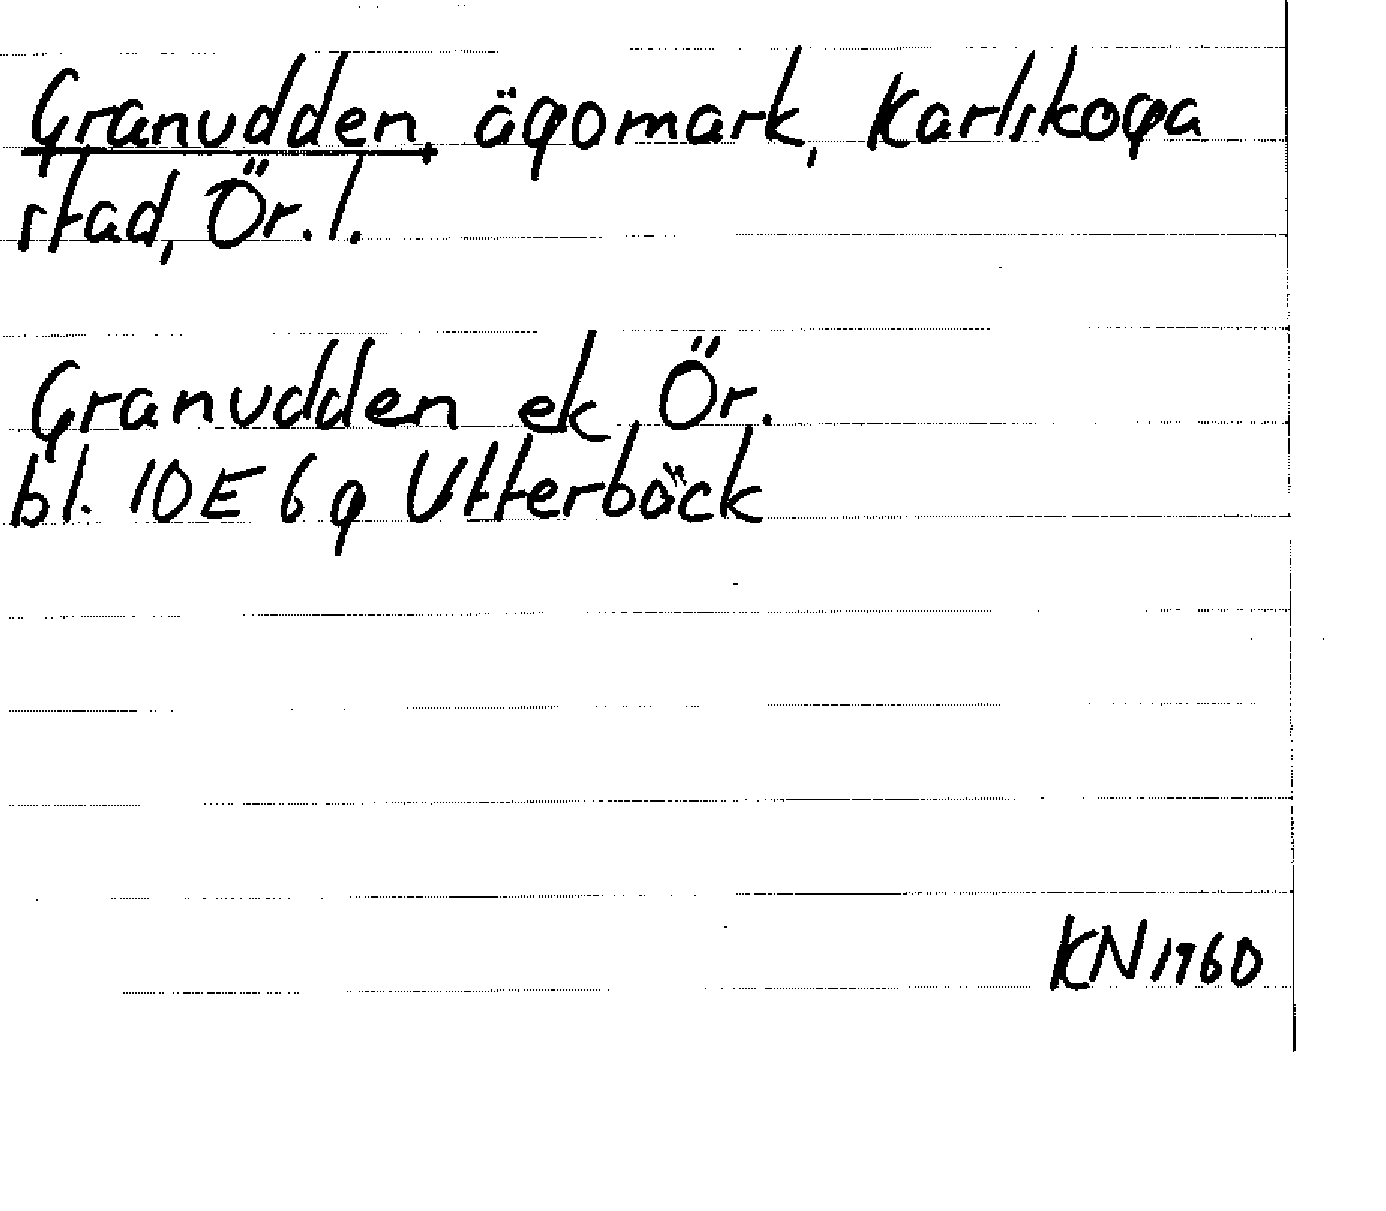 Granudden, ägomark, Karlskoga
stad, Ör. l.
Granudden ek Ör.
bl. 10E 6g Utterbäck
KN 1960